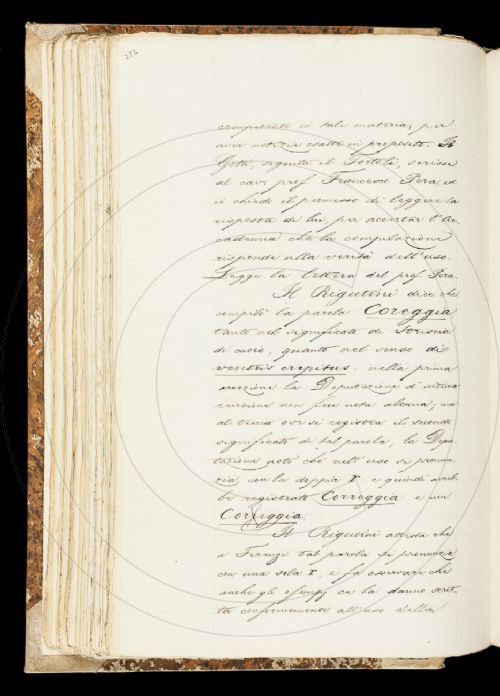 252
competente in tale materia, per
aver notizie esatte in proposito. Il
Gotti, seguita il Tortoli, scrisse
al cav. prof. Francesco Pera, ed
ei chiede il permesso di leggere la
risposta di lui, per accertar l'Ac-
cademia che la compilazione
risponde alla verità dell'uso.
Legge la lettera del prof. Pera.
Il Rigutini dice che
compilò la parola Coreggia
tanto nel significato di Striscia
di cuoio, quanto nel senso di
ventris crepitus, nella prima
accezione la Deputazione d'ultima
revisione non fece nota alcuna; ma
al tema ove si registra il secondo
significato di tal parola, la Depu-
tazione notò che nell'uso si pronun-
zia, con la doppia r, e quindi avreb-
be registrato Correggia e non
Coreggia.
Il Rigutini attesta che
a Firenze tal parola si pronunzia
con una sola r, e fa osservare che
anche gli esempj ce la danno scrit-
ta conformemente all'uso della